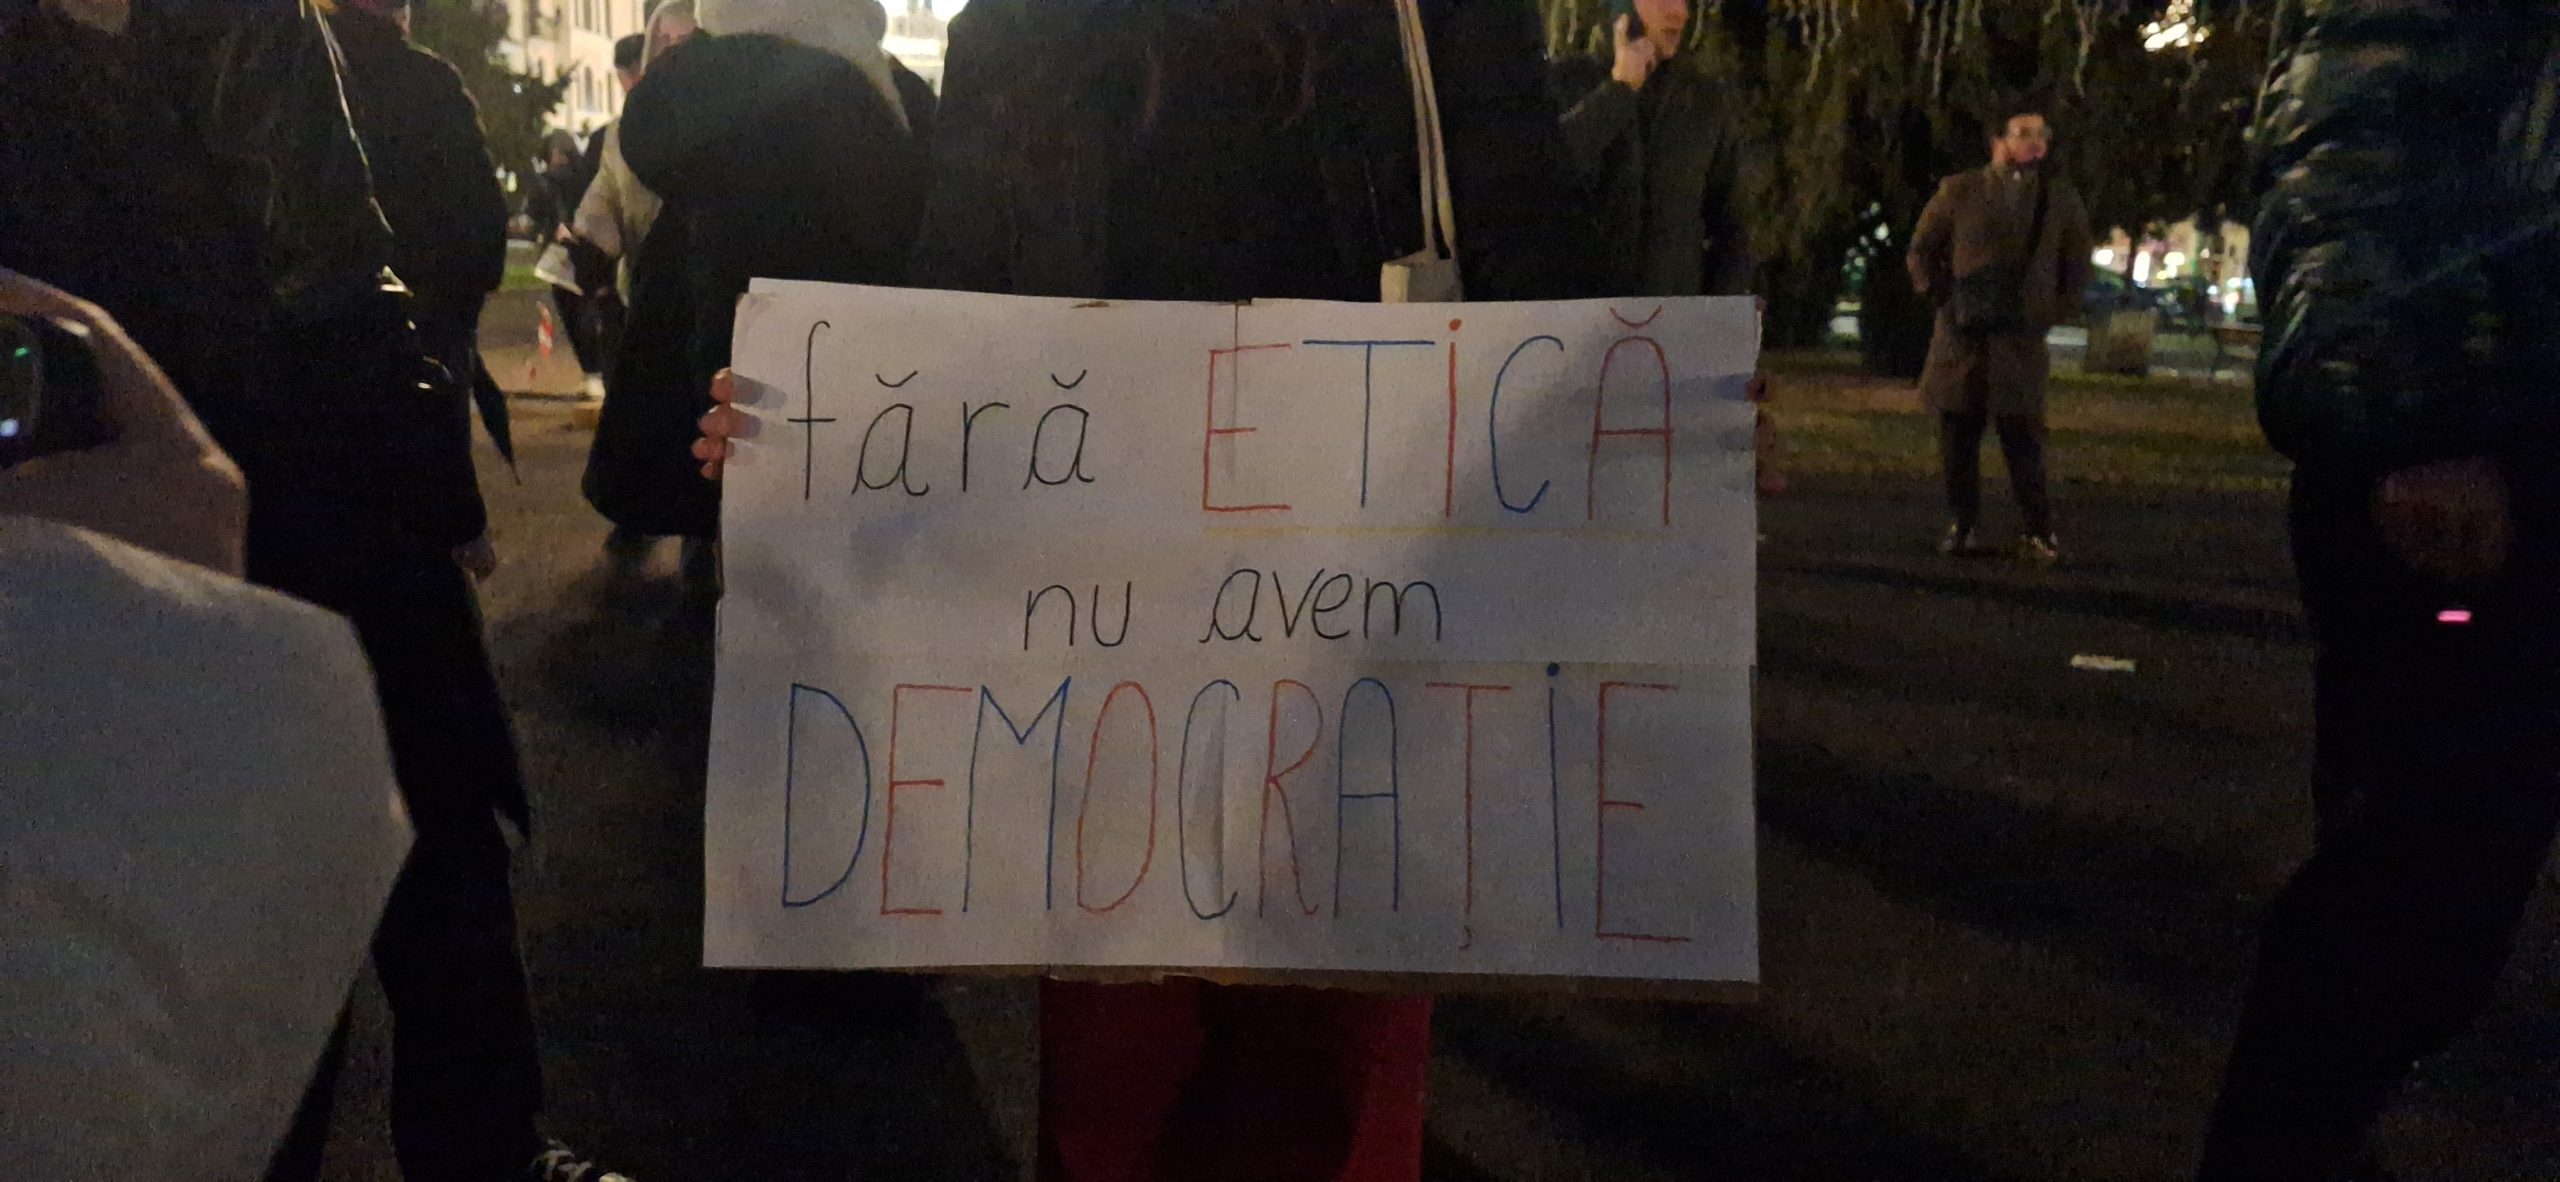 fără ETiCĂ
nu avem
DEMOCRAȚiE